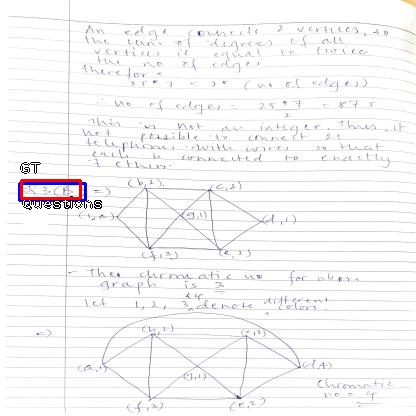 An edge connects 2 vertices, so
the sum of degrees of all
vertices is equal to twice
the no of edges
therefore
25*7 = 2* (no of edges)
∴ no of edges = 25*7 = 87.5
2
This is not an integer. Thus, it
not possible to connect 25
telephones with wires so that
each is connected to exactly
7 others.
GT
=)
Questions
(b,2)
(c,3)
(g,1)
(d,1)
(f,3)
(e,2)
- The chromatic no for above
graph is 3
let 1, 2, 3, 4 denote different
colors.
=)
(b,2)
(c,3)
(a,1)
(g,1)
(d,4)
(f,3)
(e,2)
Chromatic
no = 4